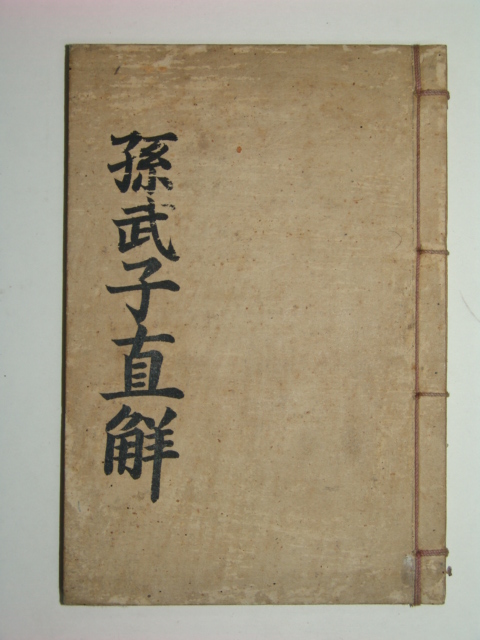 孫武子直觧